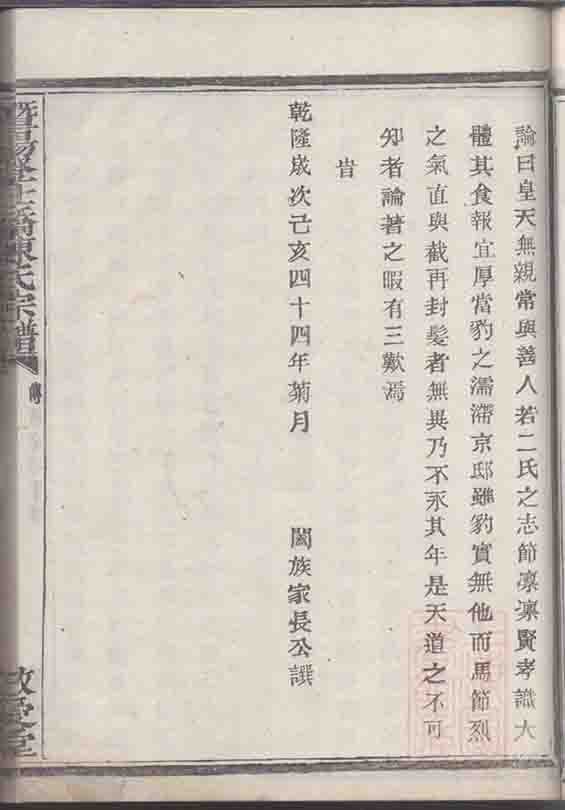 論曰皇天無親常與善人若二氏之志節凛凛賢孝識大
體其食報宜厚當豹之濡滯京邸雖豹實無他而馬節烈
之氣直與截再封髮者無異乃不永其年是天道之不可
知者論著之暇有三歎焉
旹
乾隆歲次己亥四十四年菊月 闔族家長公譔
暨陽 橋陳氏宗譜 傳 敬愛堂